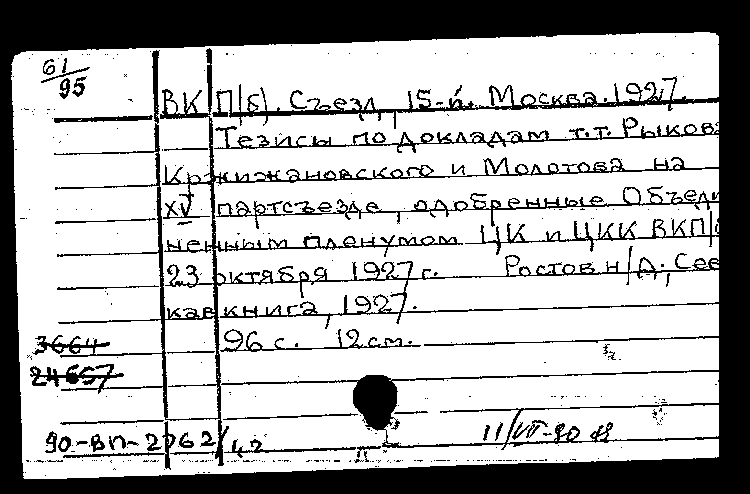 61/95
ВКП(б). Съезд, 15-й. Москва. 1927.
Тезисы по докладам т.т. Рыкова
Кржижановского и Молотова на
XV партсъезде, одобренные Объеди
ненным пленумом ЦК и ЦКК ВКП/б
23 октября 1927 г. Ростов н/Д., Сев
кавкнига, 1927.
96 с. 12 см.
3664
24657
90-ВП-2762/1,2
11/VII-90